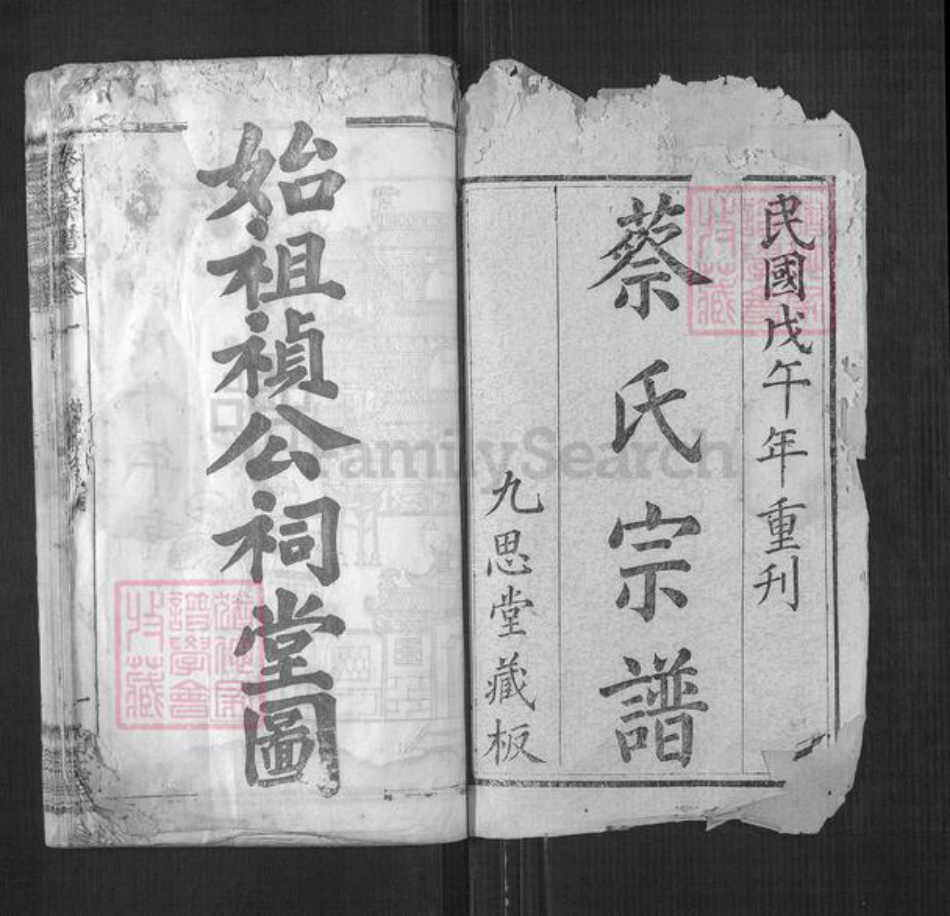 民國戊午年重刊
蔡氏宗譜
九思堂藏板
始祖禎公祠堂圖
蔡氏宗譜
卷
一
FamilySearch